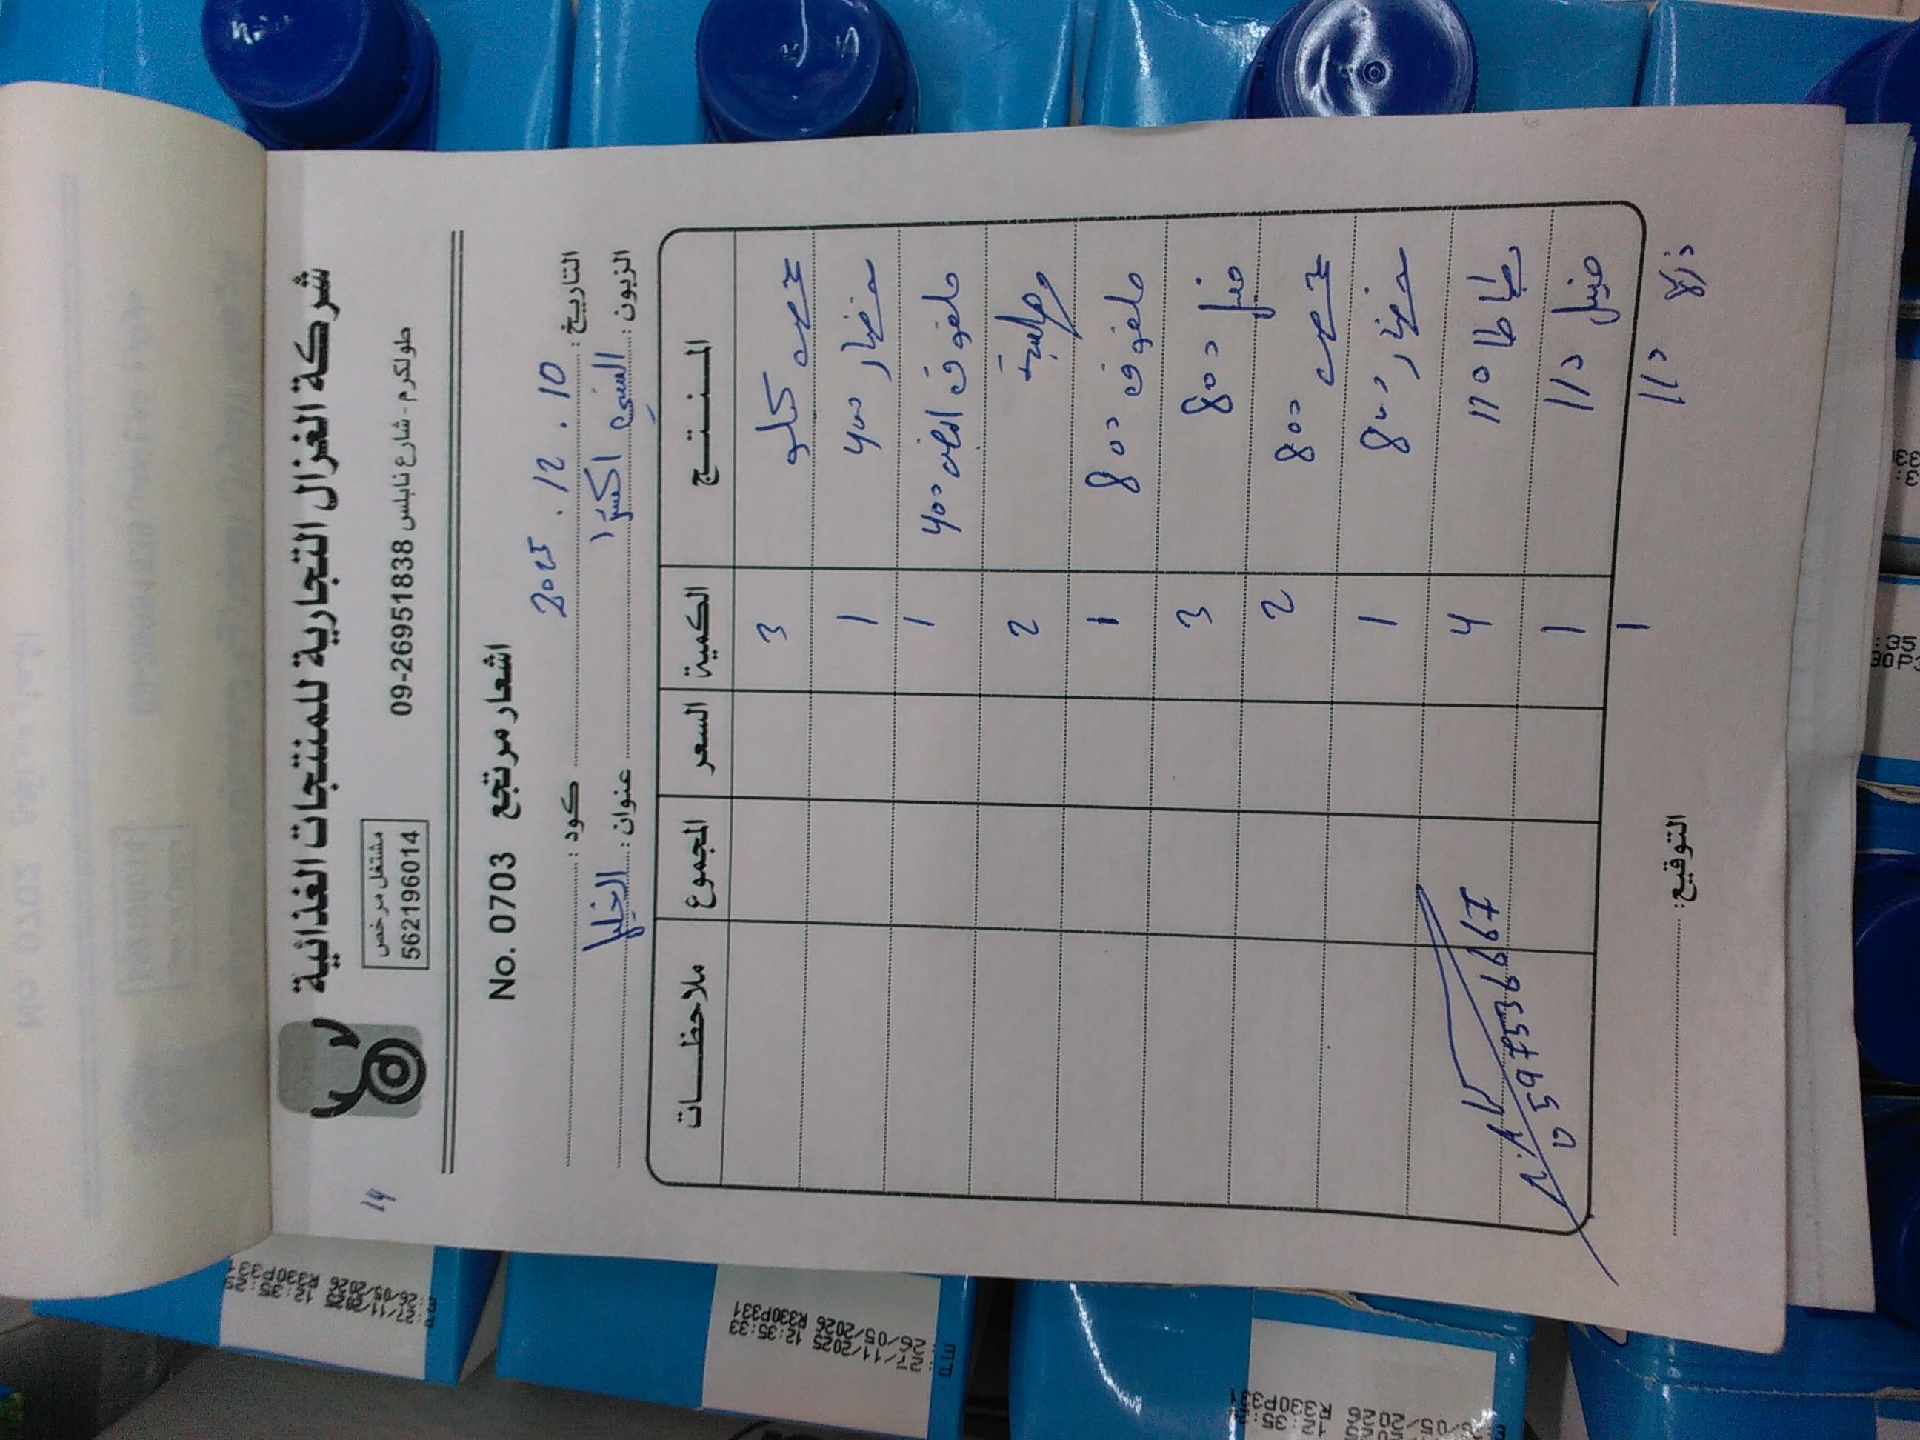 شركة الغزال التجارية للمنتجات الغذائية
طولكرم - شارع نابلس 09-26951838
مشتغل مرخص
562196014
14
No. 0703 اشعار مرتجع
التاريخ: 10 . 12 . 2025 كود:
الزبون: السني اكسترا عنوان: الخليل
المنتج الكمية السعر المجموع ملاحظات
حمص كيلو 3
خضار 400 1
ملفوف ابيض 400 1
2
ملفوف 800 1
فلفل 800 3
حمص 800 2
خضار 800 1
بطاطا 110 4
فلفل 110 1
ذرة 110 1
التوقيع:
27/11/2025 12:35:33
26/05/2026 R330P331